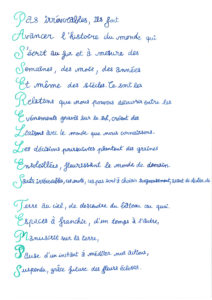 Pas irrévocables, ils font
Avancer l'histoire du monde qui
S'écrit au fur et à mesure des
Semaines, des mois, des années
Et même des siècles. Ce sont la
Relations que nous pouvons découvrir entre les
Evénements gravés sur le sol, créant des
Liaisons avec le monde que nous connaissons.
Les décisions poursuivies plantent des graines
Ensoleillées, fleurissant le monde de demain
Sauts irrévocables, ces mots, ces pas sont à choisir soigneusement, avant de
Terre au ciel, de descendre du bateau au quai
Espaces à franchir, d'un temps à l'autre,
Manuscrit sur la terre,
Pause d'un instant à méditer nos actions,
Suspendu, grâce future des fleurs écloses.